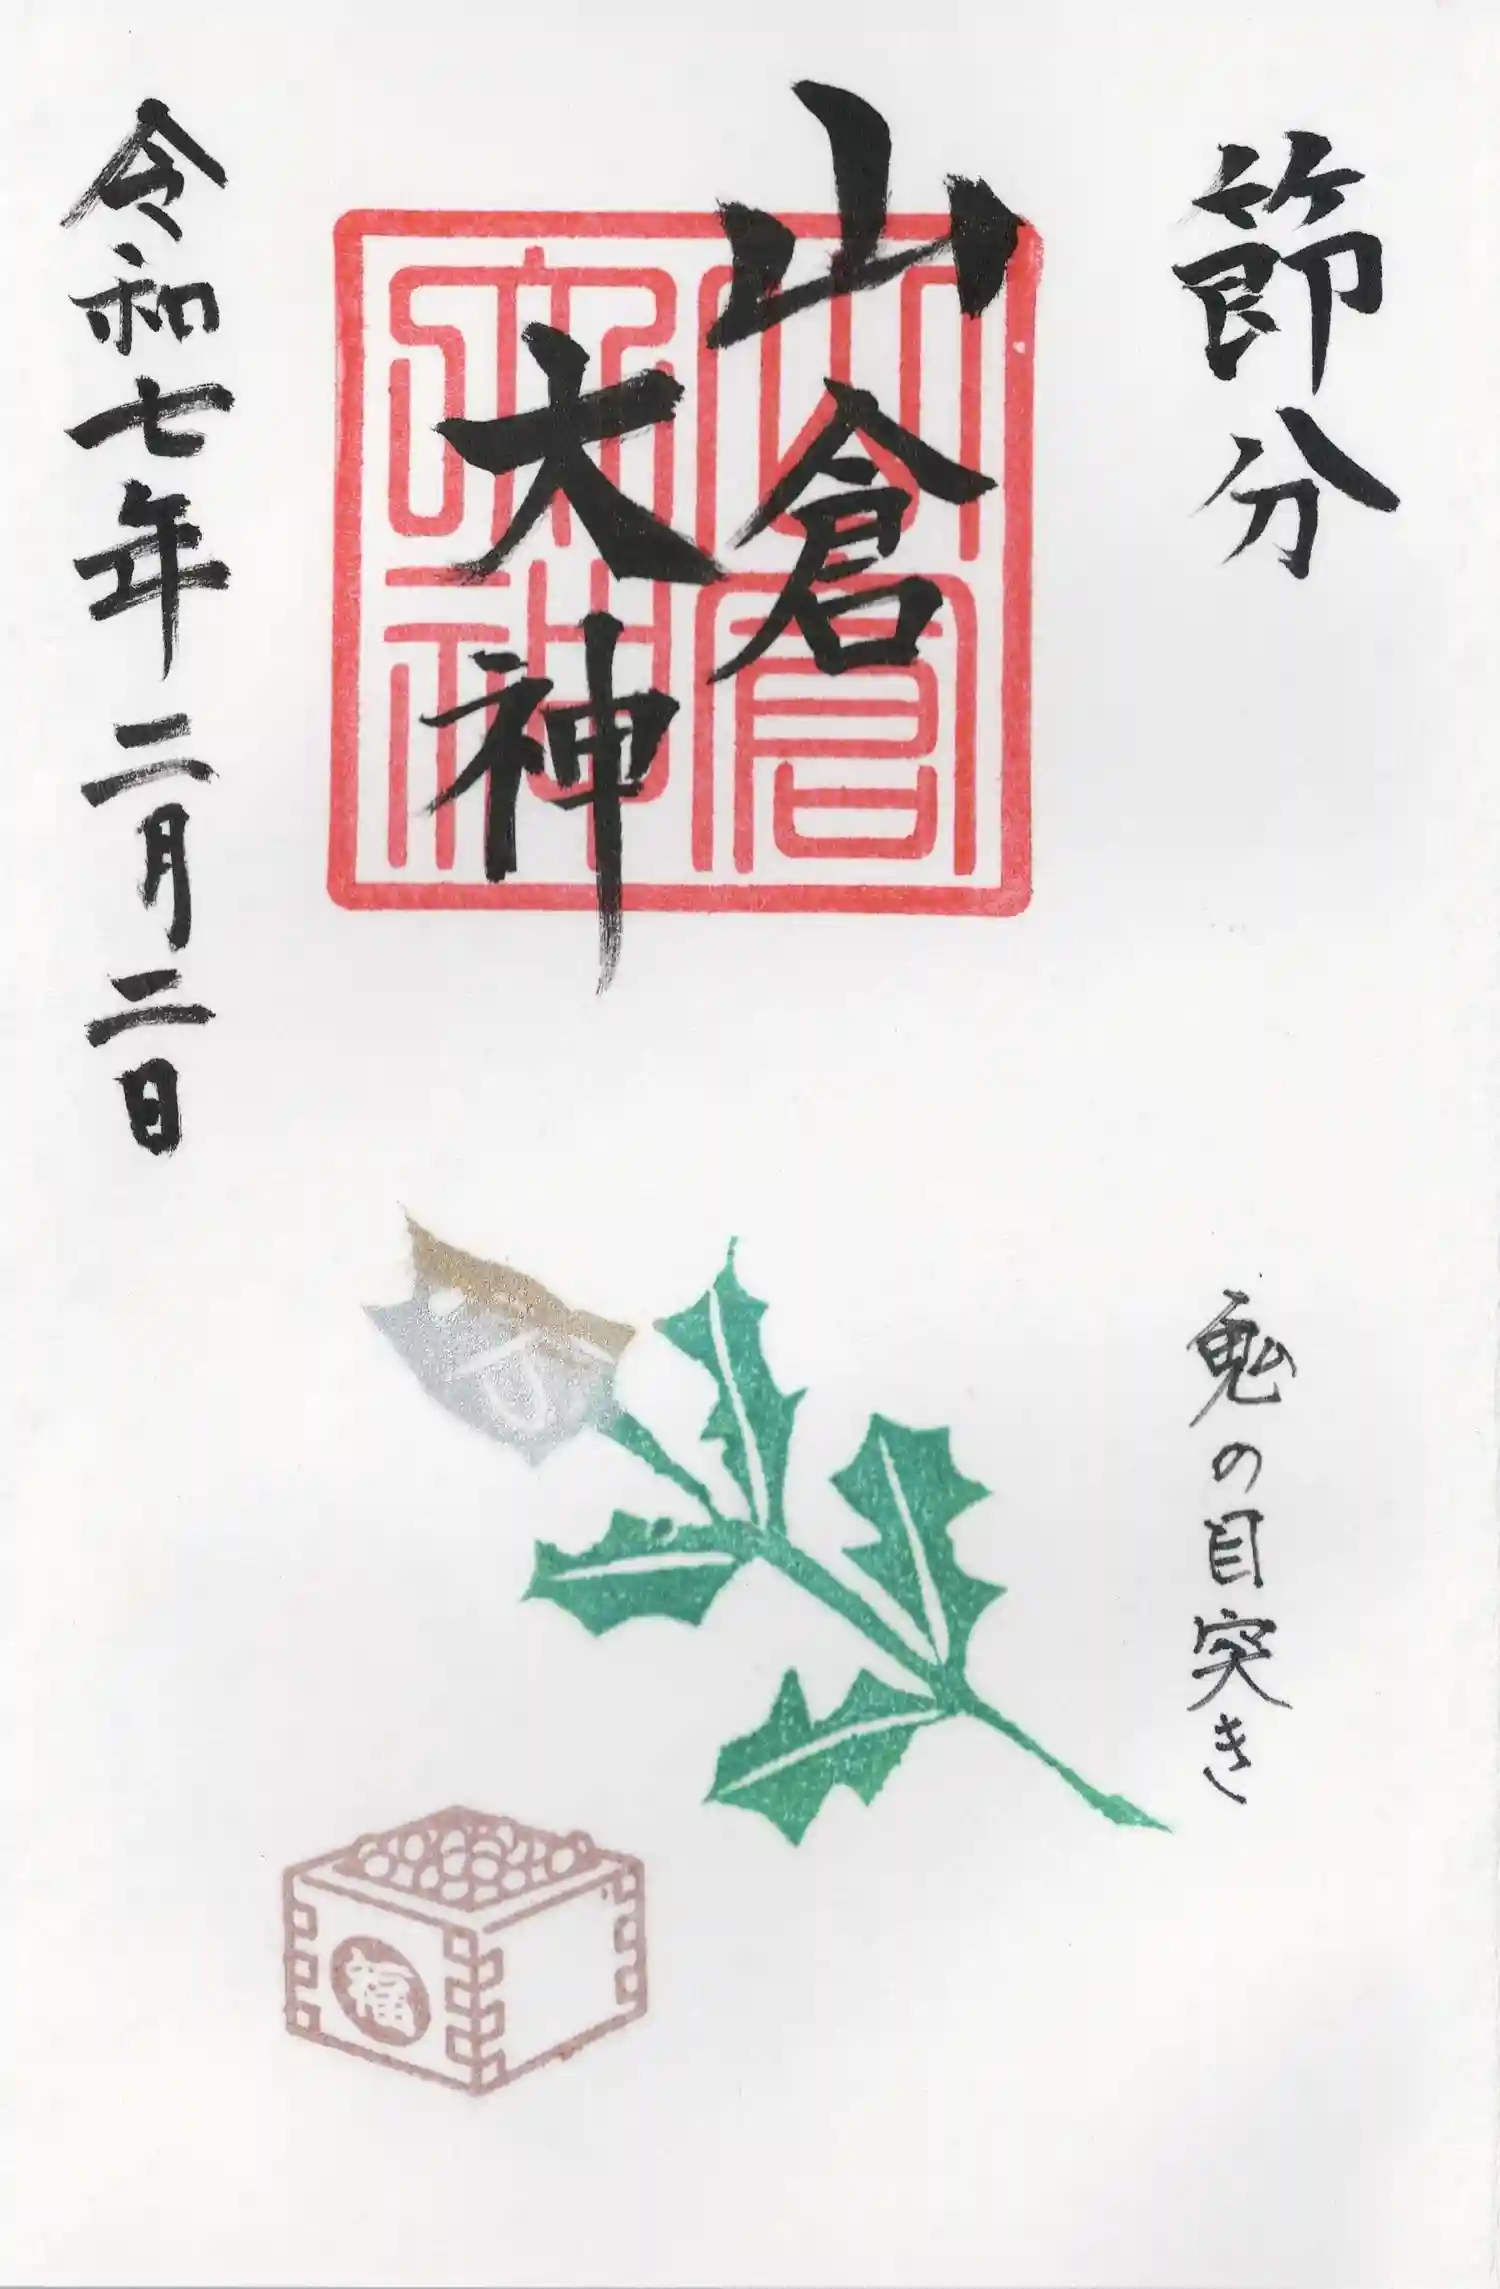 節分
山倉
大神
山倉
大神
令和七年二月二日
鬼の目突き
福